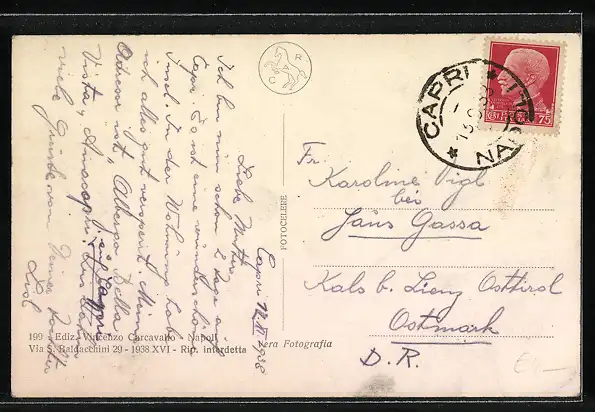 Capri 12.IX.1938
Liebe Mutter
Ich bin nun schon 2 Tage in
Capri. Es ist eine wunderschöne
Insel. In der Wohnung habe
ich alles gut versperrt. Meine
Adresse ist, Albergo Bella
Vista, Anacapri, Capri
viele Grüße von Deiner
Lisl
C R
FOTOCELERE
199 - Ediz. Vincenzo Carcavallo - Napoli
Via S. Baldacchini 29 - 1938 XVI - Rip. interdetta
vera Fotografia
CAPRI
NAPOLI
75
Fr.
Karoline Vigl
bei
Hans Gassa
Kals b. Lienz Osttirol
Ostmark
D. R.